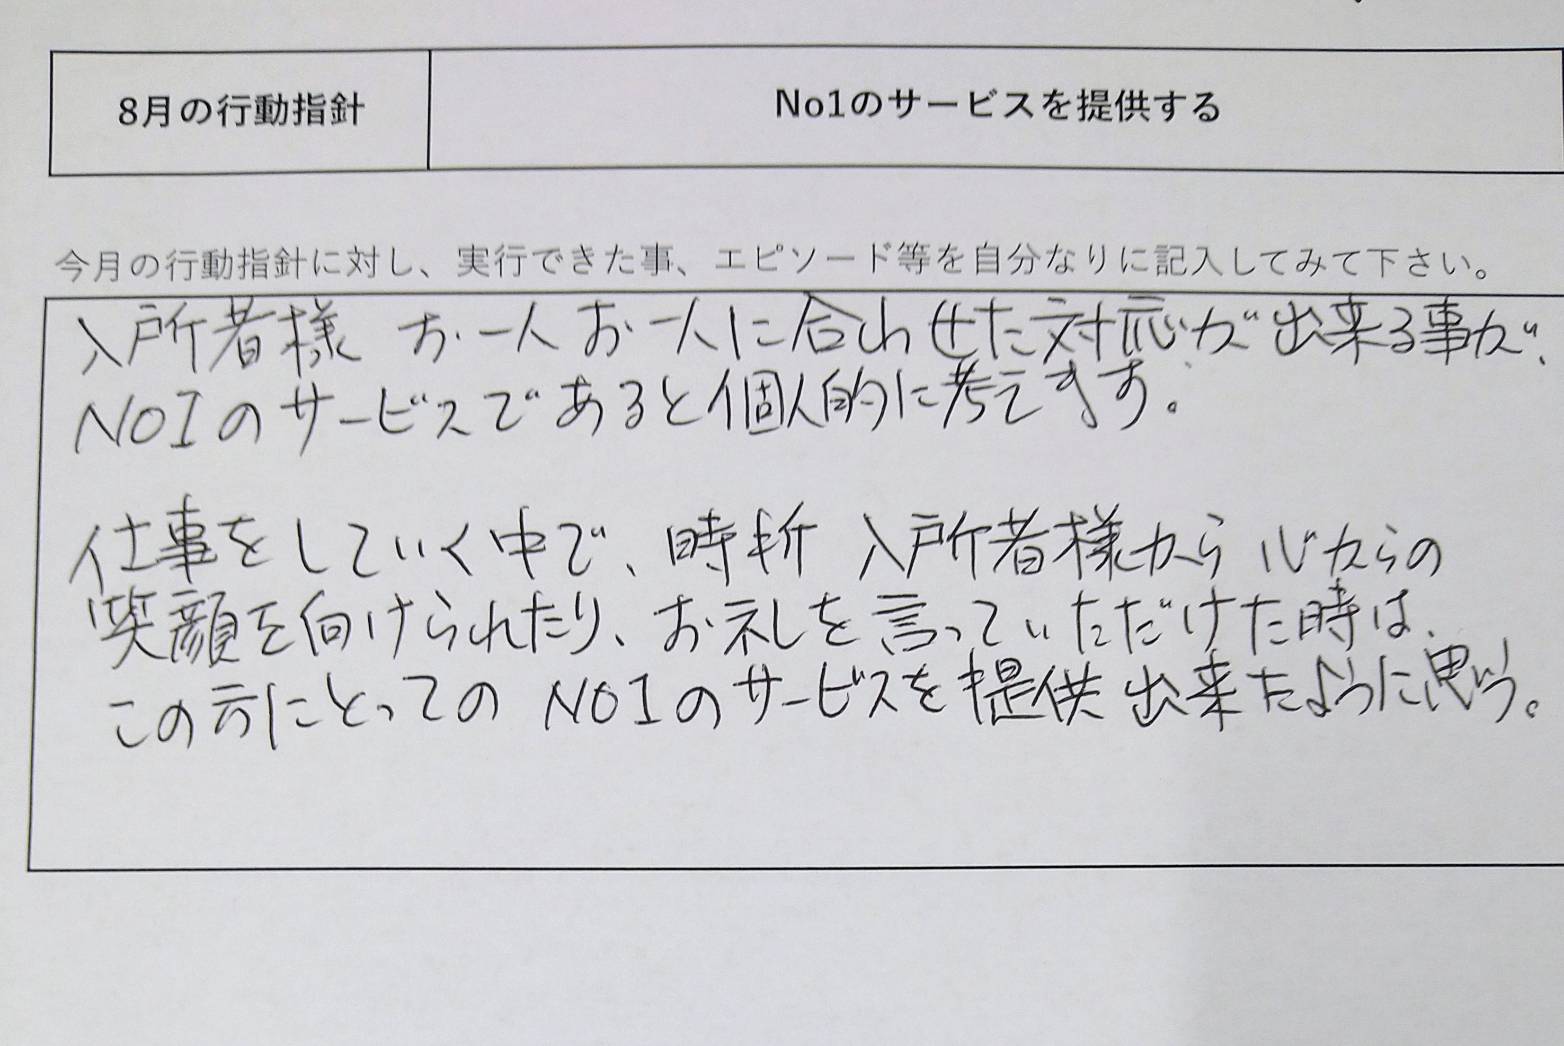 8月の行動指針
No1のサービスを提供する
今月の行動指針に対し、実行できた事、エピソード等を自分なりに記入してみて下さい。
入所者様 お一人お一人に合わせた対応が出来る事が、
NO1のサービスであると個人的に考えます。
仕事をしていく中で、時折 入所者様から心からの
笑顔を向けられたり、お礼を言っていただけた時は、
この方にとってのNO1のサービスを提供出来たように思う。